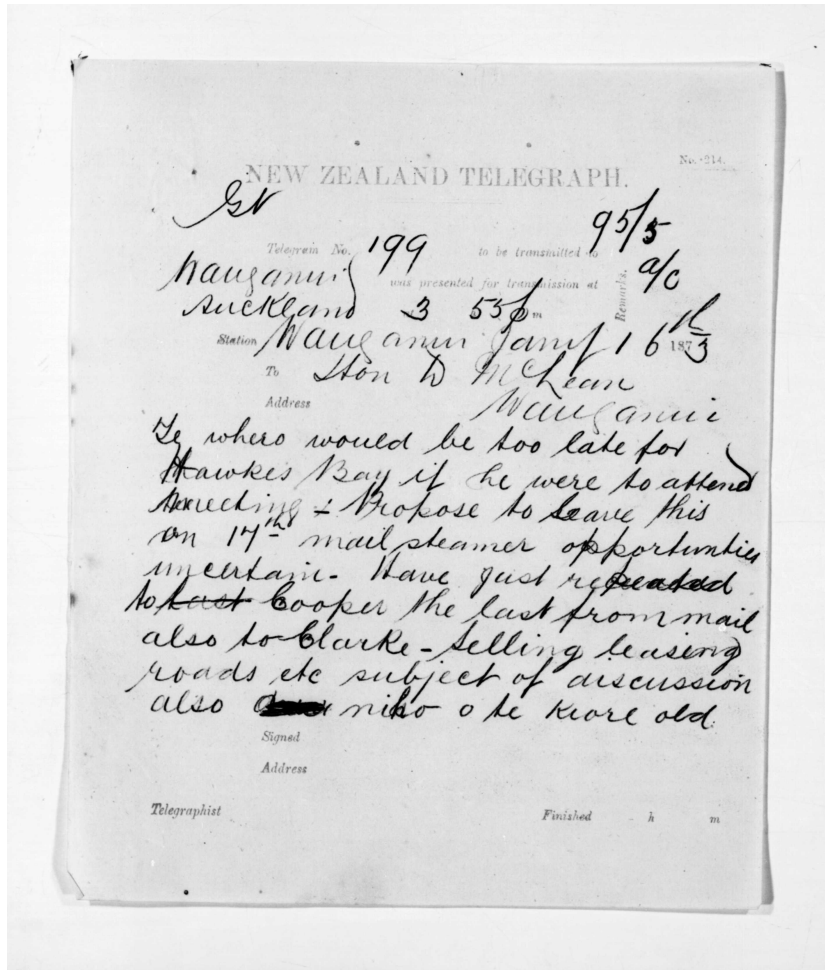 No. 214.
NEW ZEALAND TELEGRAPH.
Gn 95/5
Telegram No. 199 to be transmitted to
Wanganui was presented for transmission at
Remarks. a/c
Auckland 3 55 p m
Station Wanganui Jany 16th 1873
To Hon D McLean
Address Wanganui
Te whero would be too late for
Hawkes Bay if he were to attend
meeting - Propose to leave this
on 17th mail steamer opportunties
uncertain - Have just repeated
to Cooper the last from mail
also to Clarke - Selling leasing
roads etc subject of discussion
also niho o te kiore old
Signed
Address
Telegraphist Finished h m